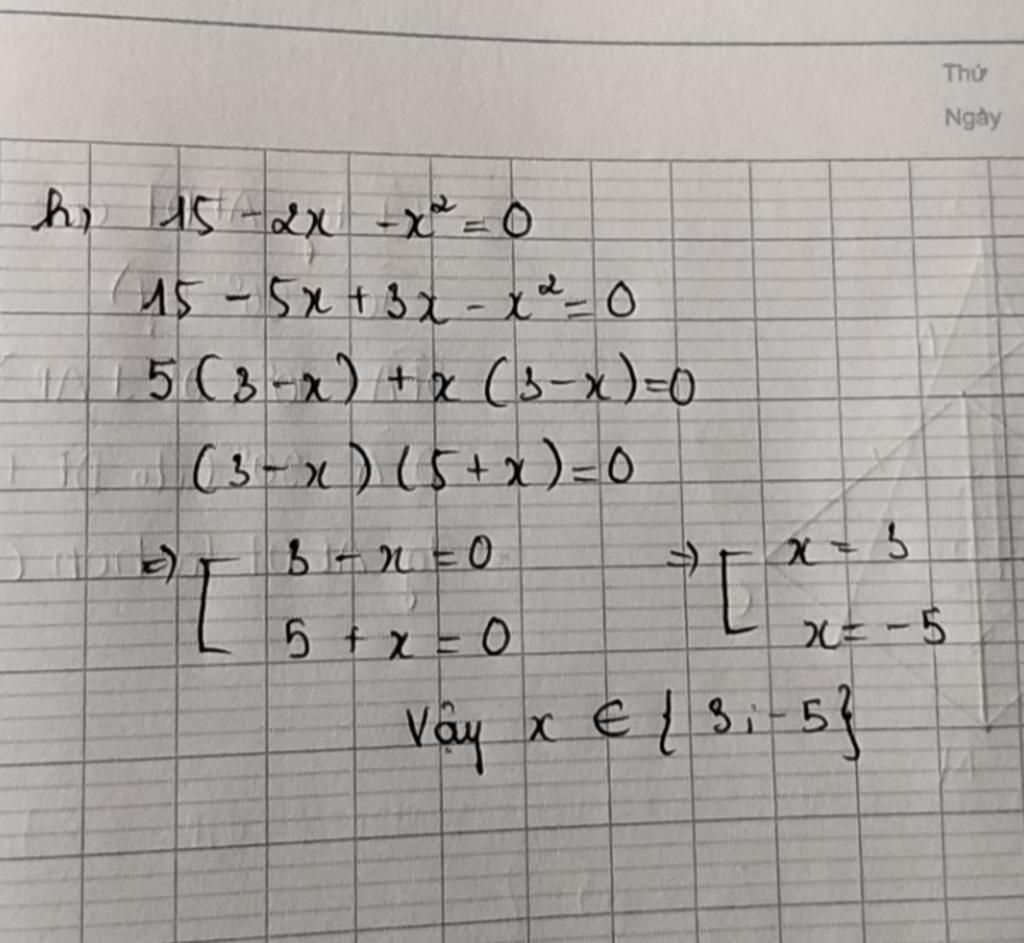 Thứ
Ngày
h, 15 - 2x - x² = 0
15 - 5x + 3x - x² = 0
5(3 - x) + x(3 - x) = 0
(3 - x)(5 + x) = 0
=> [ 3 - x = 0 => [ x = 3
5 + x = 0 x = -5
Vậy x ∈ {3; -5}